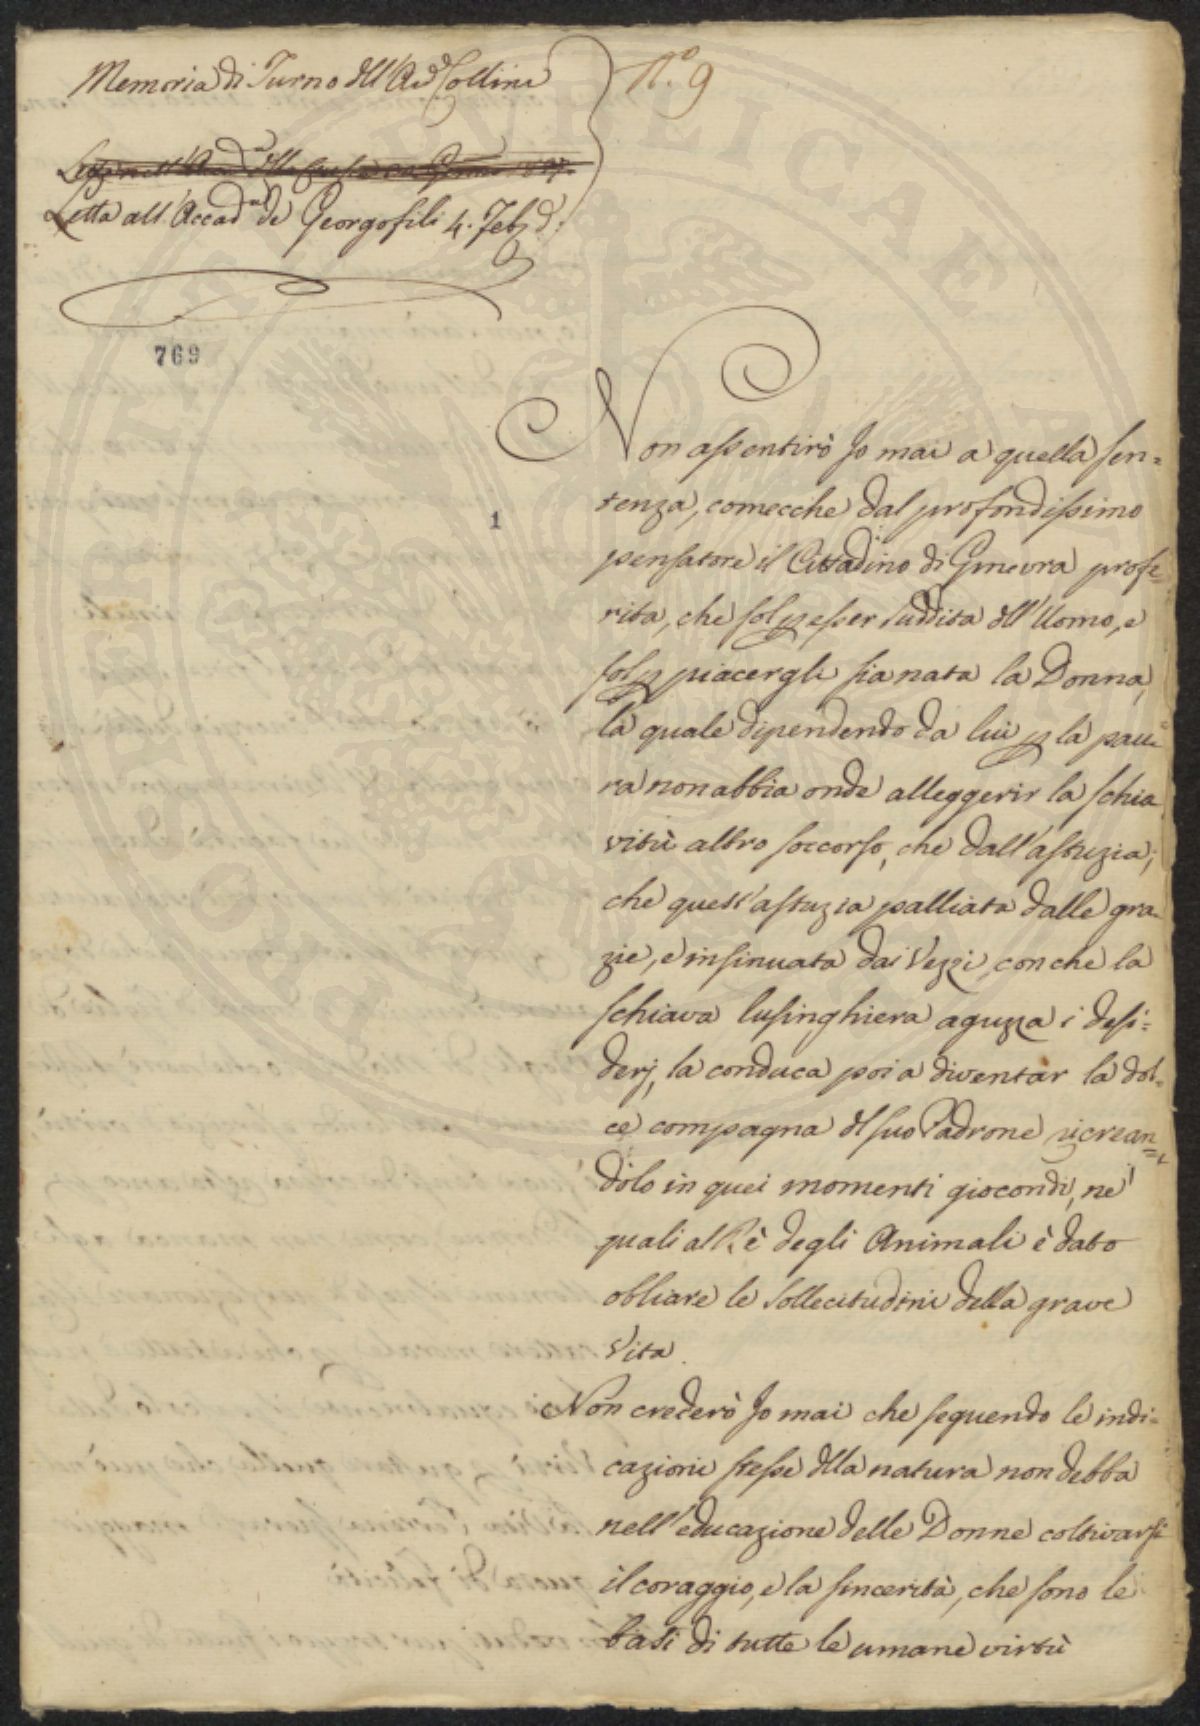 Memoria di Turno dll'Accad.co Collini
N.o 9
Letta all'Accad.a de Georgofili 4. Feb.
769
1
Non assentirò Jo mai a quella sen=
tenza, comecche dal profondissimo
pensatore il Cittadino di Ginevra profe=
rita, che sol p esser suddita dll'Uomo, e
sol p piacergli sia nata la Donna,
la quale dipendendo da lui p la pau=
ra non abbia onde alleggerir la schia
vitù altro soccorso, che dall'astuzia;
che quest'astuzia palliata dalle gra=
zie, e insinuata dai Vezzi, con che la
schiava lusinghiera aguzza i desi=
derj, la conduca poi a diventar la dol=
ce compagna dl suo Padrone ricrean=
dolo in quei momenti giocondi, ne'
quali al Rè degli Animali è dato
obliare le sollecitudini della grave
Vita.
Non crederò Jo mai che seguendo le indi=
cazioni stesse dlla natura non debba
nell'educazione delle Donne coltivarsi
il coraggio, e la sincerità, che sono le
basi di tutte le umane virtù